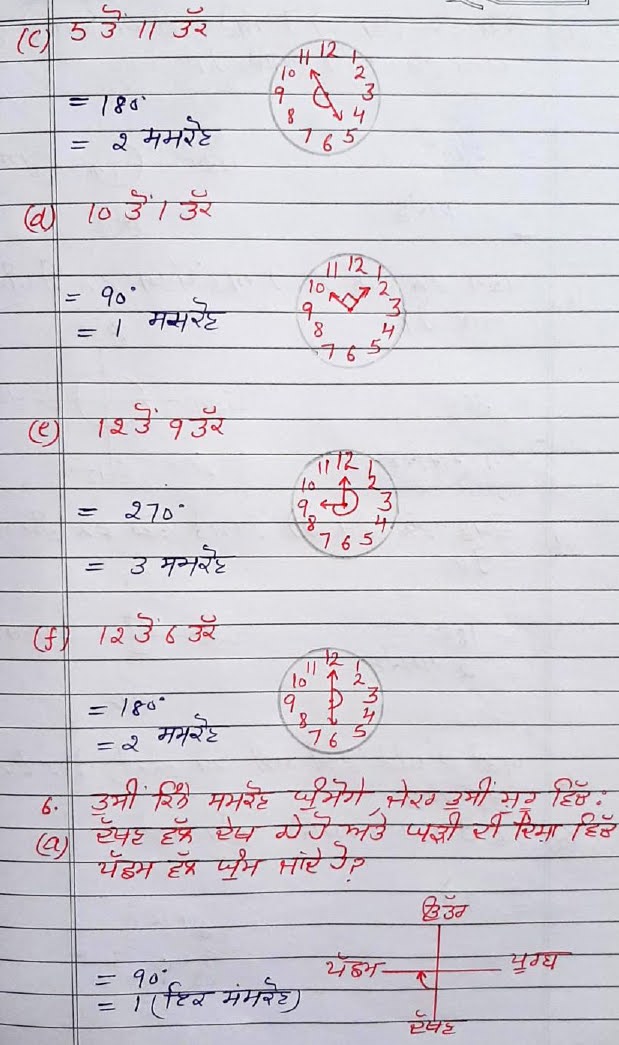 (c) 5 ਤੋਂ 11 ਤੱਕ
12
11 1
10 2
9 3
8 4
7 6 5
= 180°
= 2 ਸਮਕੋਣ
(d) 10 ਤੋਂ 1 ਤੱਕ
11 12 1
10 2
9 3
8 4
7 6 5
= 90°
= 1 ਸਮਕੋਣ
(e) 12 ਤੋਂ 9 ਤੱਕ
11 12 1
10 2
9 3
8 4
7 6 5
= 270°
= 3 ਸਮਕੋਣ
(f) 12 ਤੋਂ 6 ਤੱਕ
11 12 1
10 2
9 3
8 4
7 6 5
= 180°
= 2 ਸਮਕੋਣ
6. ਤੁਸੀਂ ਕਿੰਨੇ ਸਮਕੋਣ ਘੁੰਮੋਗੇ, ਜੇਕਰ ਤੁਸੀਂ ਸ਼ੁਰੂ ਵਿੱਚ:
(a) ਦੱਖਣ ਵੱਲ ਦੇਖ ਰਹੇ ਹੋ ਅਤੇ ਘੜੀ ਦੀ ਦਿਸ਼ਾ ਵਿੱਚ
ਪੱਛਮ ਵੱਲ ਘੁੰਮ ਜਾਂਦੇ ਹੋ?
ਉੱਤਰ
ਪੱਛਮ ਪੂਰਬ
= 90°
= 1 (ਇਕ ਸੰਮਕੋਣ)
ਦੱਖਣ